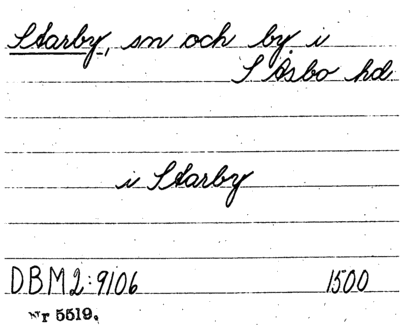 Starby, sn och by i
S Åsbo hd
i Starby
DBM 2:9106 1500
Nr 5519.